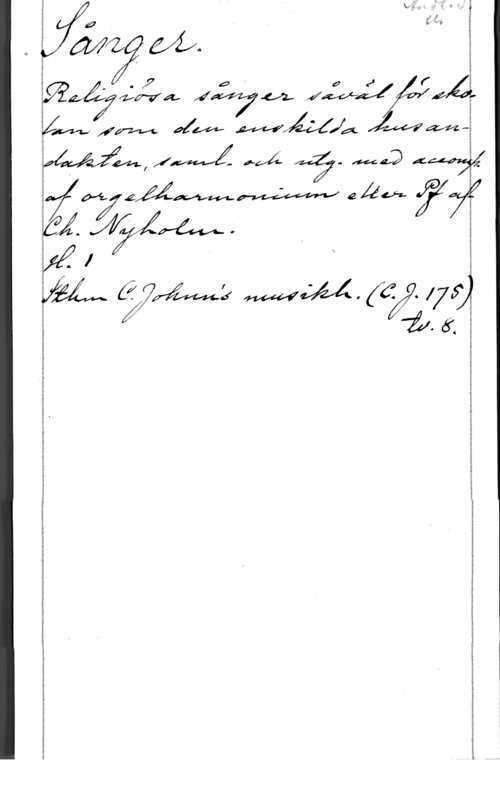 Sånger.
Religiösa sånger såväl för sko-
lan som den enskilda husan-
dakten, saml. och utg. med accomp.
af orgelharmonium eller Pf af
Ch. Nyholm.
H. 1
Sthm C. Johnn's musikh. (C. J. 175)
tv. 8.